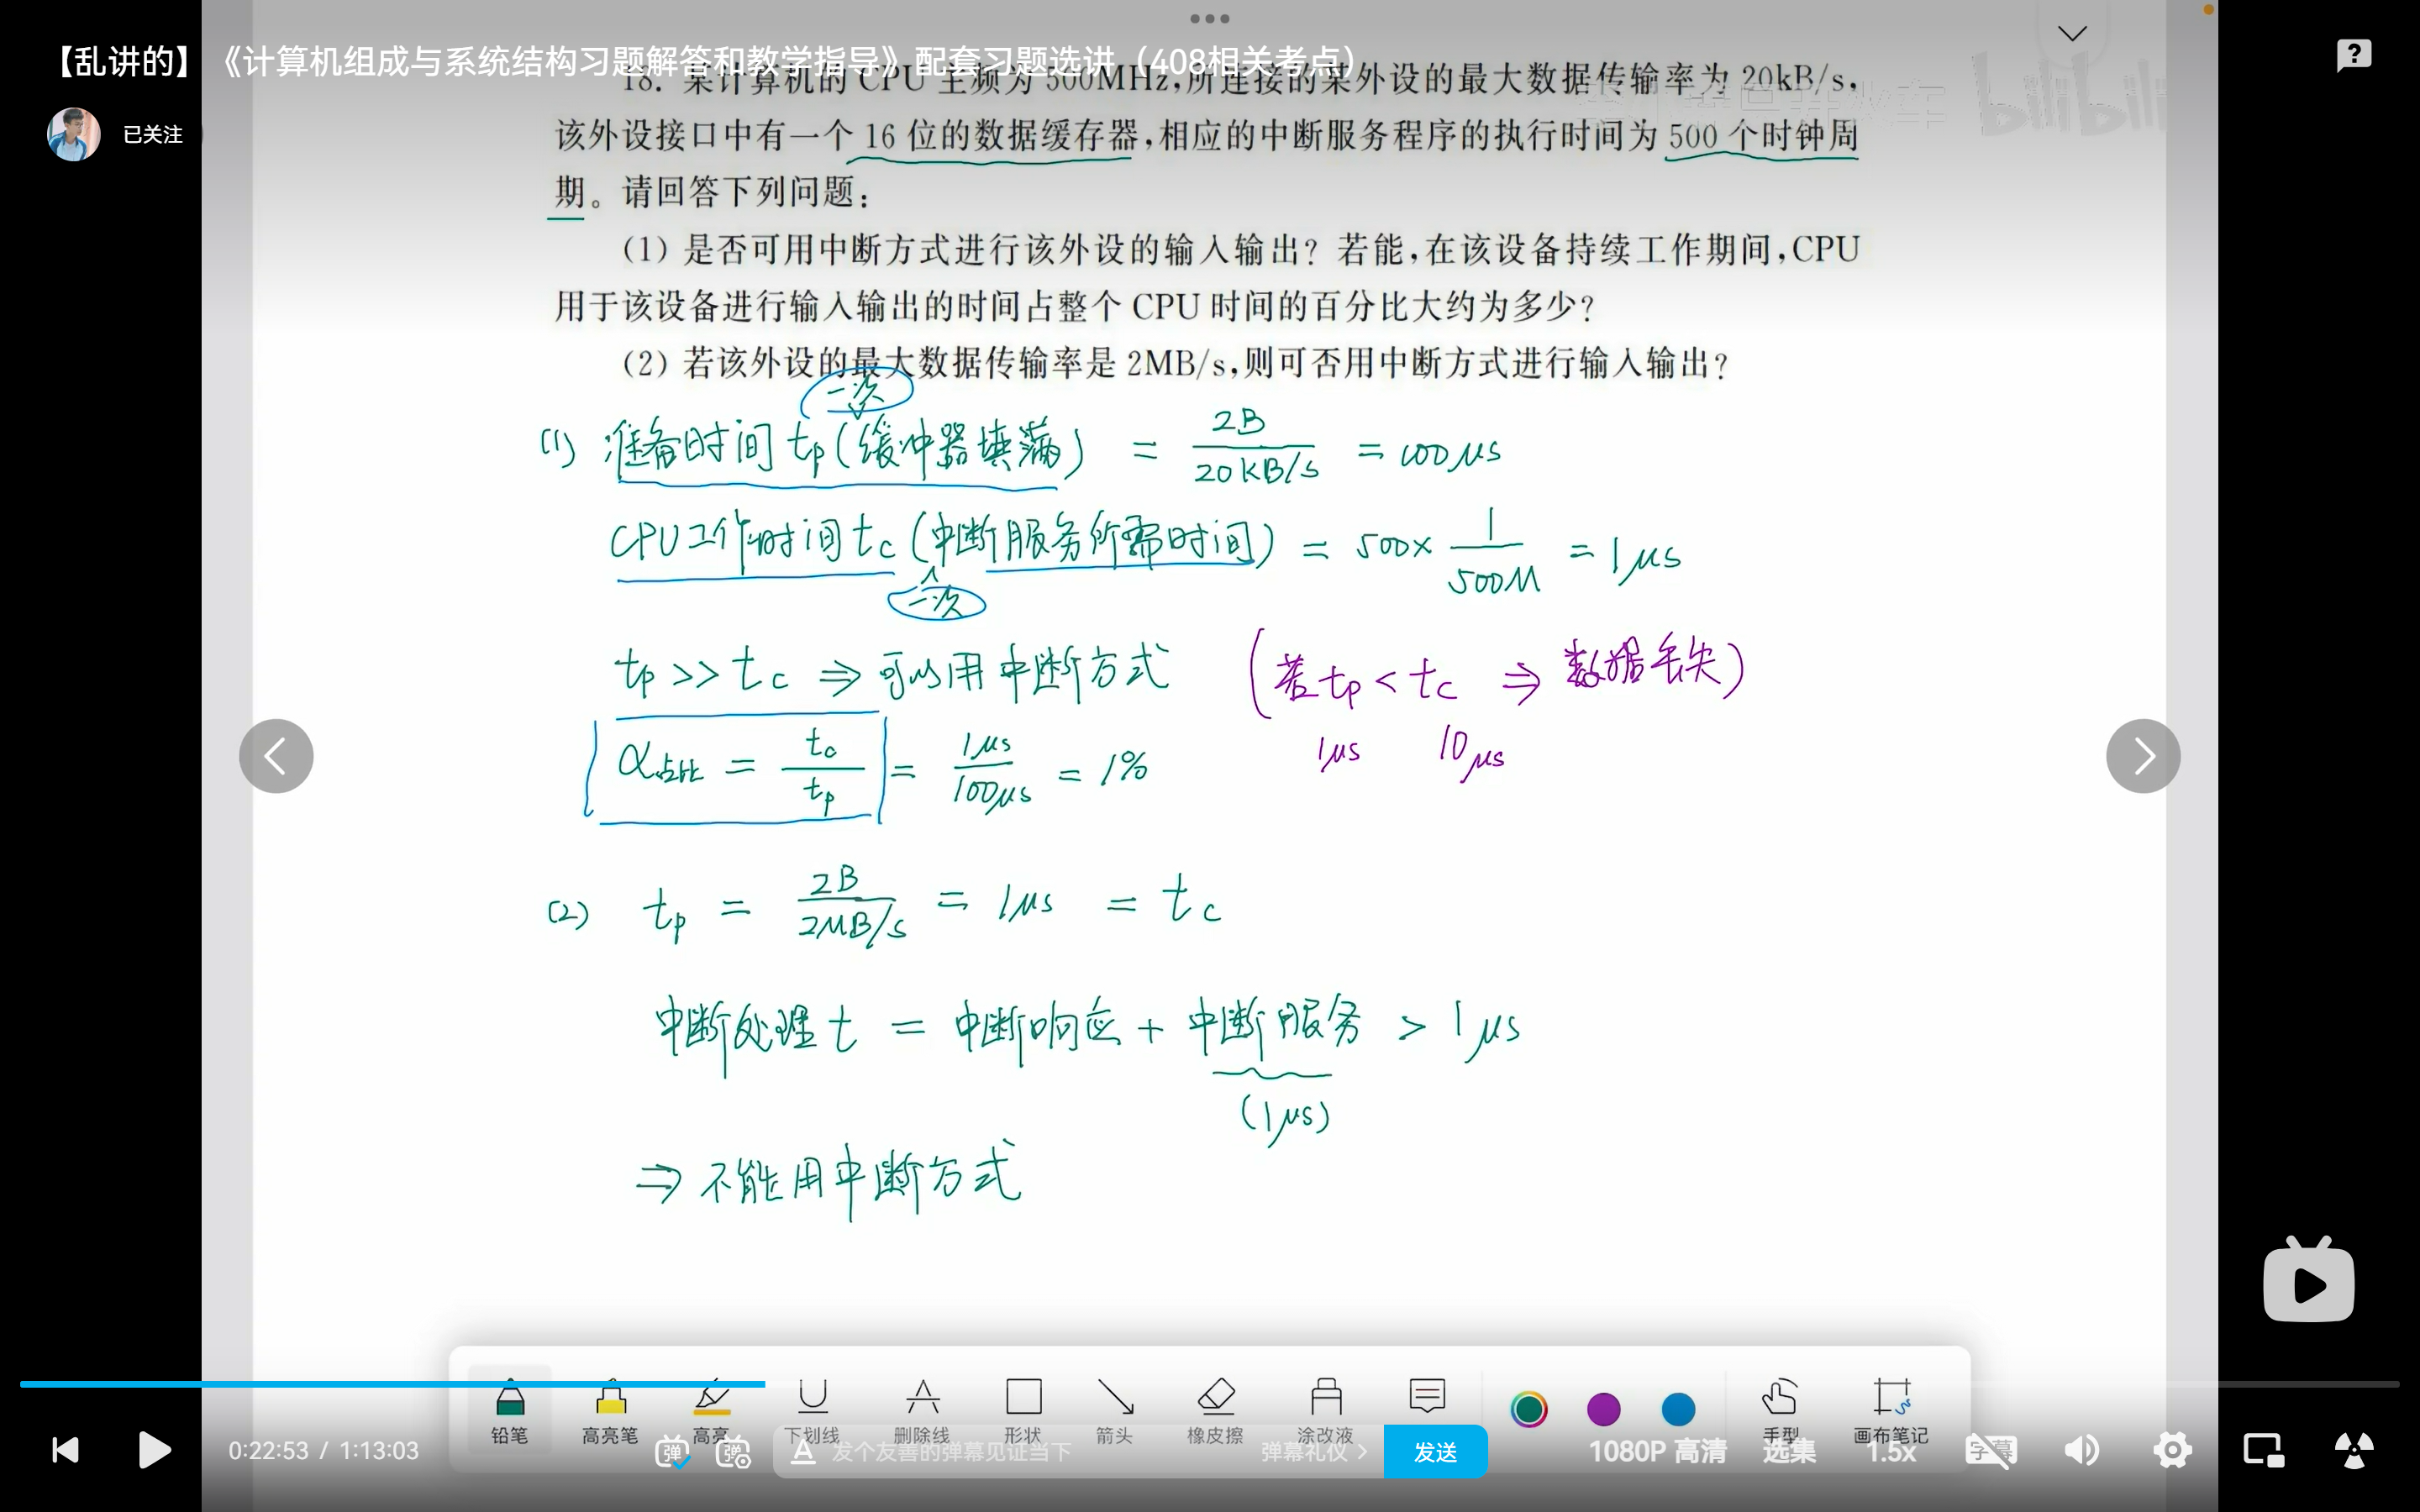 【乱讲的】《计算机组成与系统结构习题解答和教学指导》配套习题选讲（408相关考点）
已关注
bilibili
18. 某计算机的 CPU 主频为 500MHz,所连接的某外设的最大数据传输率为 20kB/s,
该外设接口中有一个 16 位的数据缓存器,相应的中断服务程序的执行时间为 500 个时钟周
期。请回答下列问题:
(1) 是否可用中断方式进行该外设的输入输出? 若能,在该设备持续工作期间,CPU
用于该设备进行输入输出的时间占整个 CPU 时间的百分比大约为多少?
(2) 若该外设的最大数据传输率是 2MB/s,则可否用中断方式进行输入输出?
一次
(1) 准备时间 tp (缓冲器填满) = 2B / 20KB/s = 100μs
CPU工作时间 tc (中断服务所需时间) = 500× 1 / 500M = 1μs
一次
tp >> tc ⇒ 可以用中断方式 (若 tp < tc ⇒ 数据丢失)
1μs 10μs
α占比 = tc / tp = 1μs / 100μs = 1%
(2) tp = 2B / 2MB/s = 1μs = tc
中断处理 t = 中断响应 + 中断服务 > 1μs
(1μs)
⇒ 不能用中断方式
铅笔 高亮笔 高亮 下划线 删除线 形状 箭头 橡皮擦 涂改液 手型 画布笔记
0:22:53 / 1:13:03 弹 弹 发个友善的弹幕见证当下 弹幕礼仪 > 发送 1080P 高清 选集 1.5x 字幕